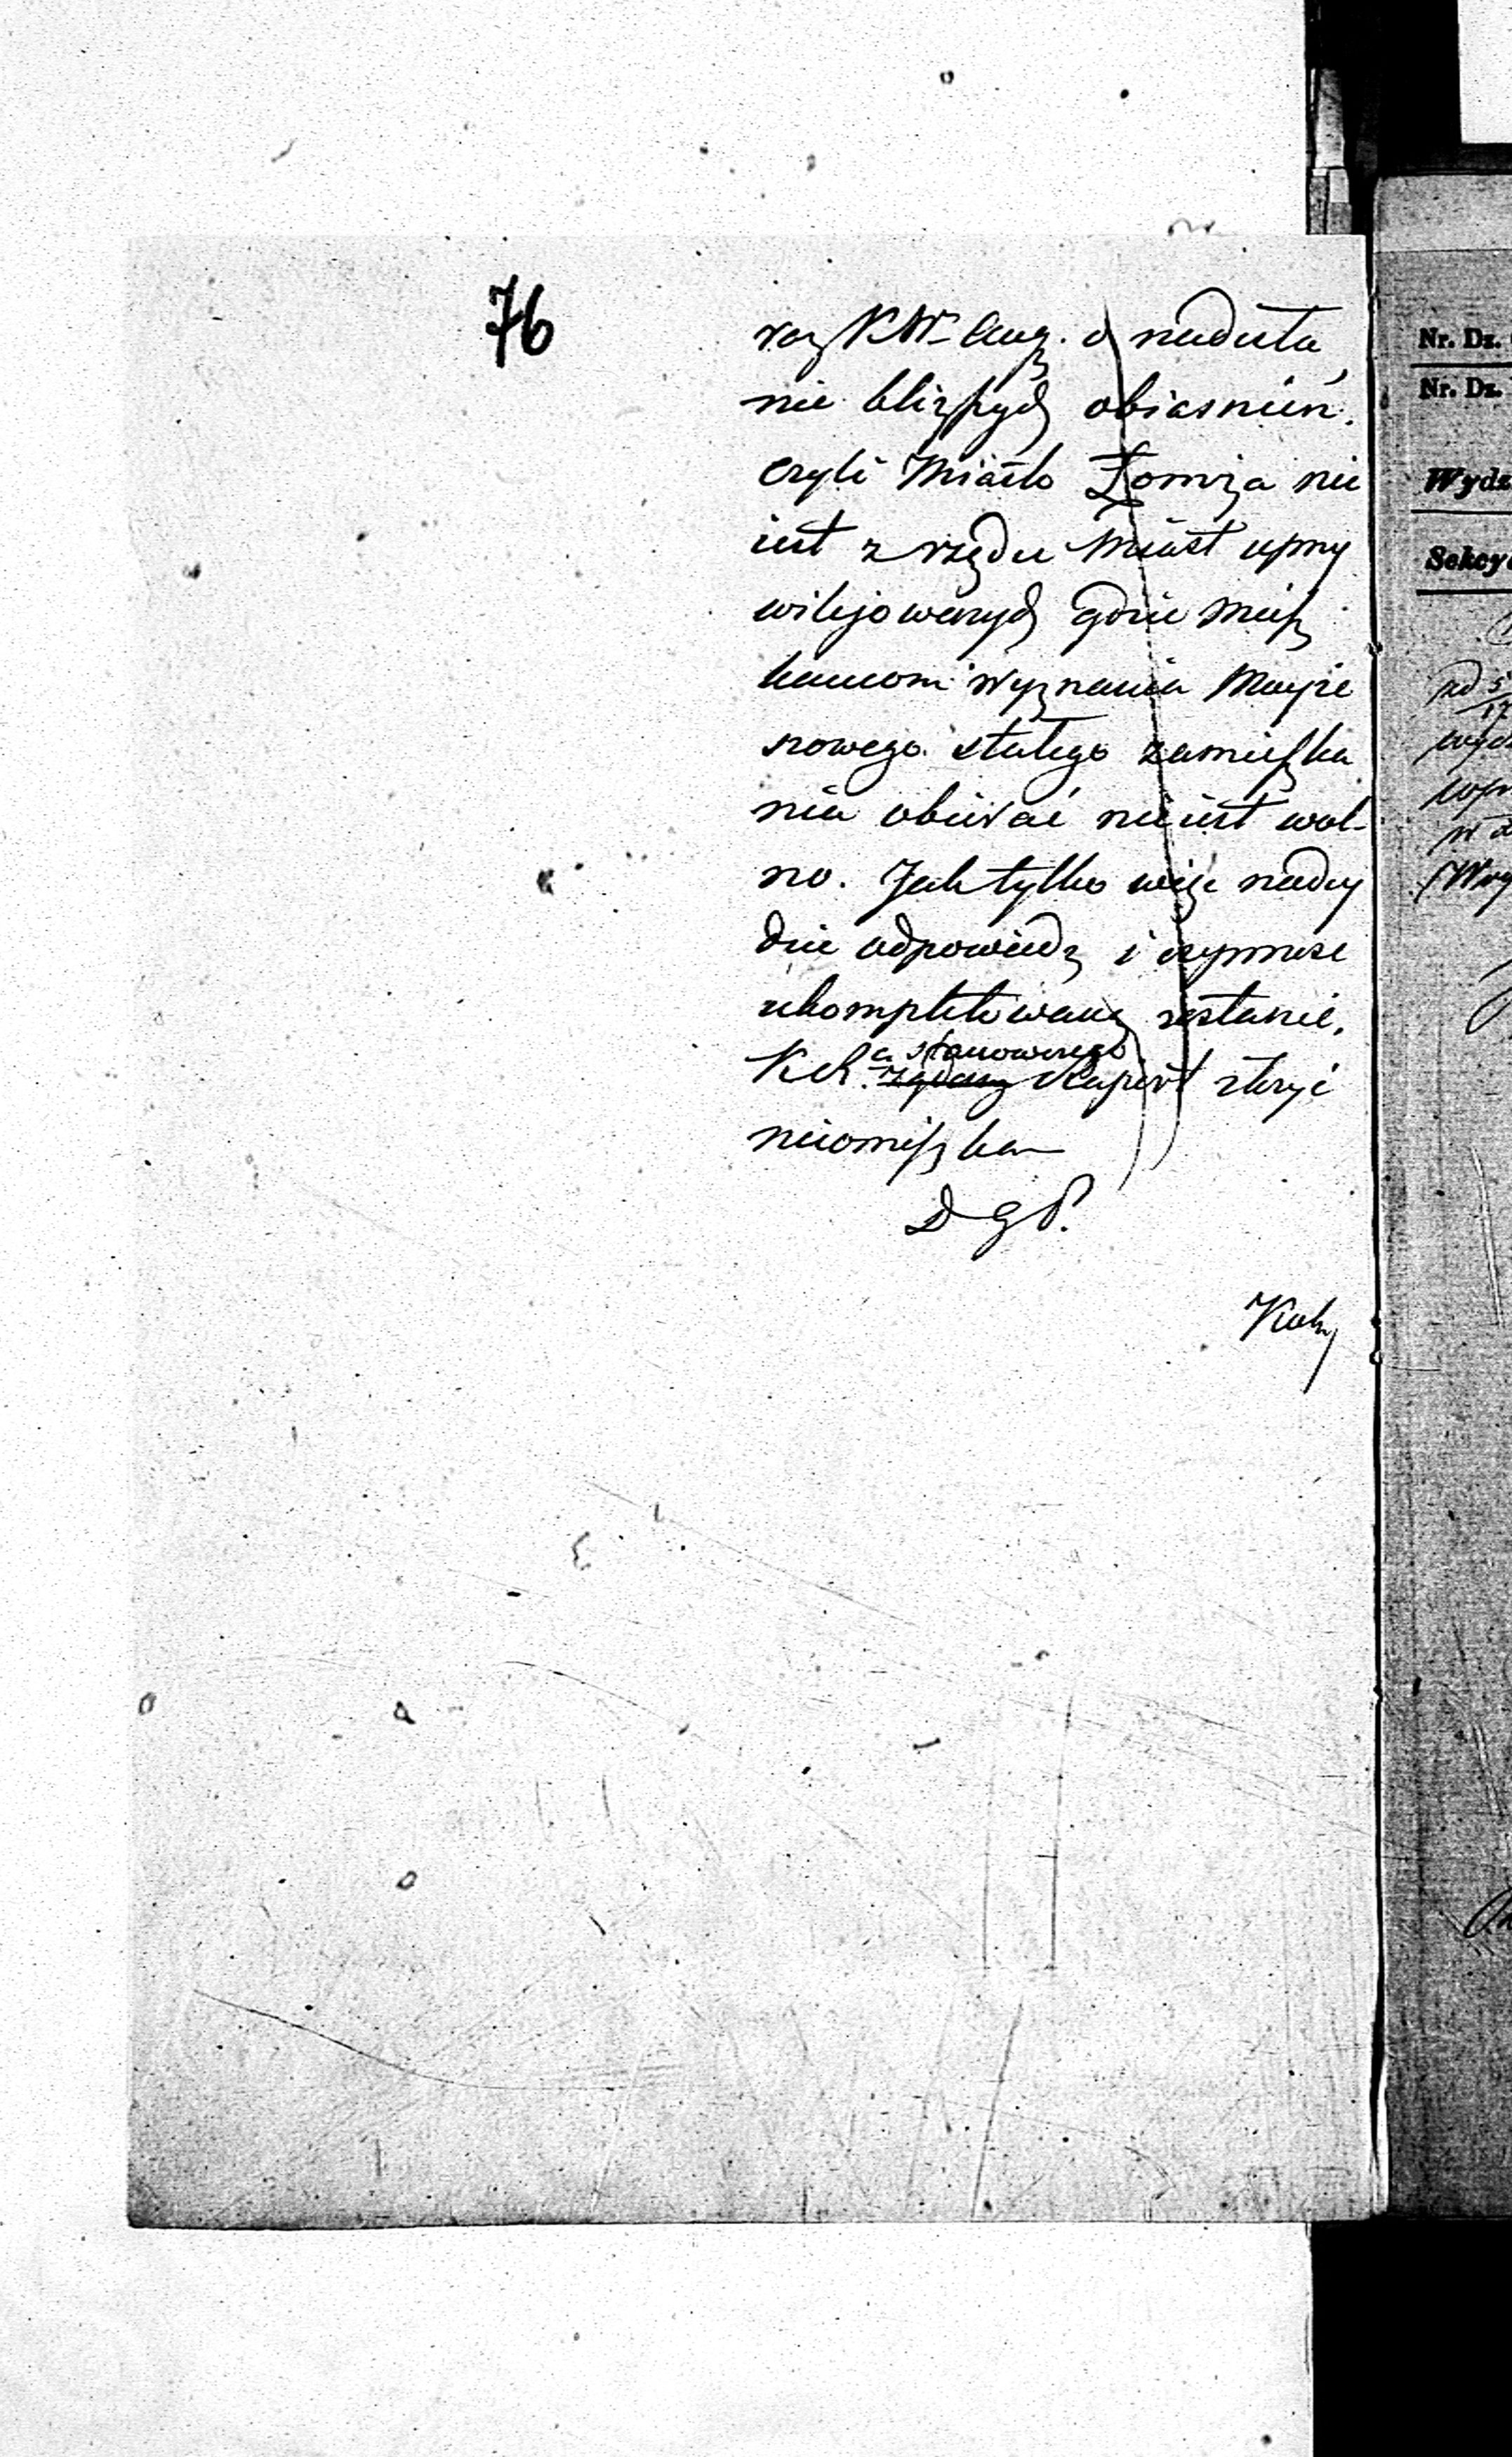 76
raz KW Aug. o nadesła
nie bliższych obiasnień,
czyli Miasto Łomża nie
iest z rzędu Miast upry
wilejowanych gdzie Miesz
kancom wyznania Mojże
szowego stałego zamieszka
nia obierać nie iest wol-
no. Jak tylko więc nadey
dzie odpowiedz i
ukompletowaną zostanie,
stanowczego
Raport złożyć
nieomieszka
D G P.
Nr. Dz.
Nr. Dz.
Wydz
Sekcy